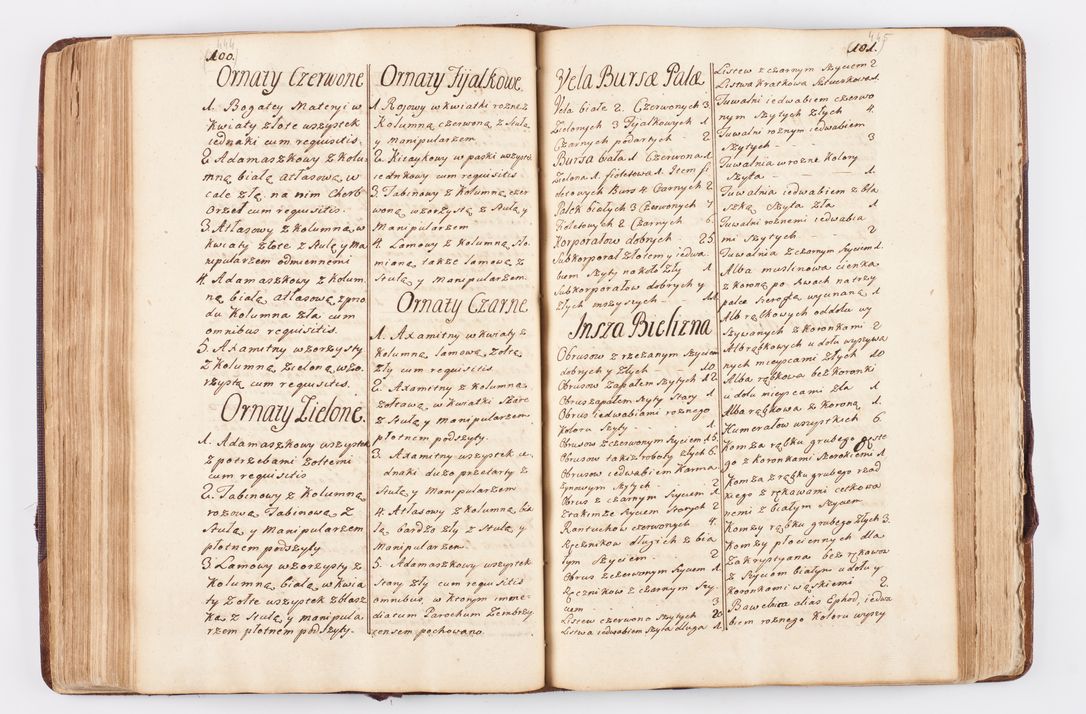 100.
444
Ornaty Czerwone
1. Bogatey Materyi w
kwiaty złote wszystek
iednaki cum requisitis.
2. Adamaszkowy z Kolu-
mną białą atłasową, w
cale zła, na nim Cherb
Orzeł cum requisitis.
3. Atłasowy z kolumną w
kwiaty złote z Stułą y Ma
nipularzem odmiennemi
4. Adamaszkowy z kolum
ną białą atłasową zpno
du Kolumna zła cum
omnibus requisitis.
5. Axamitny wzorzysty
z kolumną zieloną wzo-
rzystą cum requisitis.
Ornaty Zielone.
1. Adamaszkowy wszystek
z potrzebami żołtemi
cum requisitis
2. Tabinowy z Kolumną
rozową Tabinową z
Stułą y Manipularzem
płotnem podszyty
3 Lamowy wzorzysty z
Kolumną białą w kwia
ty żołte wszystek z blasz
ką z Stułą y manipula
rzem płotnem podszyty.
Ornaty Fijałkowe.
1. Rozowy w kwiatki rożne z
Kolumną czerwoną z Stułą
y Manipularzem
2. Kitaykowy w paski wszystek
iednkowy cum requisitis
3. Tabinowy z Kolumną czer
woną wzorzystą z Stułą y
Manipularzem
4. Lamowy z Kolumną sło
mianą także lamową z
Stułą y Manipularzem
Ornaty Czarne
1. Axamitny w kwiaty z
kolumną lamową żołtą
zły cum requisitis
2. Axamitny z Kolumną
żołtawą w kwiatki szare
z Stułą y Manipularzem
płotnem podszyty.
3. Axamitny wszystek ie-
dnaki dużo przetarty z
Stułą y Manipularzem
4. Atłasowy z Kolumną bia
łą bardzo zły z Stułą y
Manipularzem.
5. Adamaszkowy wszystek
stary zły cum requisitis
omnibus, w ktorym imme-
diatum Parochum Zembrzy
censem pochowano.
101.
445
Vela Bursæ Palæ
Vela białe 2. Czerwonych 3
Zielonych 3 Fijałkowych 1
Czarnych podartych 2
Bursa biała 1. Czerwona 1.
Zielona 1. fioletowa 1. Item fi
oletowych Burs 4 Czarnych 2
Palek białych 3 Czerwonych 7
Fioletowych 2 Czarnych 6
Korporałow dobrych - 25.
Subkorporał złotem y iedwa
biem szyty na około zły 1
Subkorporałow dobrych y
złych mszysych - 11
Insza Bielizna
Obrusow z rzezanym szyciem
dobrych y złych - 10
Obrusow zapałem szytych 12
Obrus zapałem szyty stary 1
Obrus iedwabiami rożnego
koloru szyty - 1
Obrusow z czerwonym szyciem 15.
Obrusow takiż roboty złych 6.
Obrusow iedwabiem Karma
zynowym szytych - 2
Obrus z czarnym szyciem 1
Także szyciem starych 2
Rantuchow czerwonych 4.
Ręcznikow długich z bia
łym szyciem - 2
Obrus z czerwonym szyciem 1
Ręcznikow z czarnym szy-
ciem - 3
Listew czerwono szytych 20
Listwa iedwabiem szyta długa 1
Listew z czarnym szyciem 2
Listwa kratkowa szlaczkowa 1.
Tuwalni iedwabiem czerwo
nym szytych złych 4.
Tuwalni rożnym iedwabiem
szytych - 3
Tuwalnia w rożne kolory
szyta - 1.
Tuwalnia iedwabiem z bla
szką szyta zła 1
Tuwalni rożnemi iedwabia
mi szytych - 2
Tuwalnia z czarnym szyciem 1.
Alba muślinowa cienka
z koroną po szwach na trzy
palce szeroką wycinaną 1
Alb rąbkowych od dołu wy
szywanych z koronkami 2
Alb rąbkowych u dołu wyszywa
nych mieyscami złych 10
Alba rąbkowa bez koronki
u dołu mieyscami zła 1
Alba rąbkowa z koroną 1
Humerałow wszystkich 6.
Komża rąbku grubego gęste
go z koronkami szerokiemi 1
Komża z rąbku grubego rzad
kiego z rękawami cętkowa
nemi z białym szyciem
Komży rąbku grubego złych 3.
Komży płociennych dla
Zakrystyana bez rękawow
z szyciem białym u dołu y
koronkami wąskiemi 2.
Bawełnica alias Ephod, iedwa
biem rożnego koloru wyszy